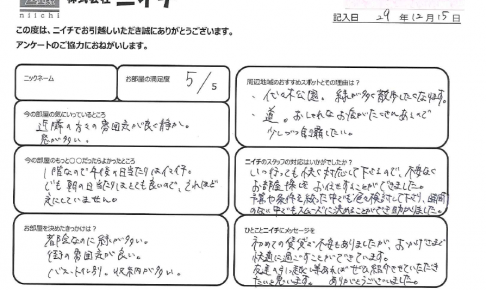 株式会社 ニイチ
niichi
記入日 29年12月15日
この度は、ニイチでお引越しいただき誠にありがとうございます。
アンケートのご協力におねがいします。
ニックネーム
お部屋の満足度 5/5
今の部屋の気にいっているところ
近隣の方々の雰囲気が良く静か。
窓が多い。
今の部屋のもっと○○だったらよかったところ
1階なので午後の日当たりはイマイチ。
でも朝の日当たりはとても良いので、それほど
気にしていません。
お部屋を決めたきっかけは？
都会なのに緑が多い。
街の雰囲気が良い。
バス・トイレ別。収納が多い。
周辺地域のおすすめスポットとその理由は？
・代々木公園。緑が多く散歩したくなります。
・道。おしゃれなお店がたくさんあるので
少しづつ開拓したい。
ニイチのスタッフの対応はいかがでしたか？
いつ行っても快く対応して下さるので、不安なく
お部屋探しをおまかせすることができました。
予算や条件を絞った中でも色々検討して下さり、時間
のない中でもスムーズに決めることができ助かりました。
ひとことニイチにメッセージ
初めての賃貸で不安もありましたが、おかげさまで
快適に過ごすことができています。
友達の引っ越し等あればぜひ紹介させていただき
たいと思います。ありがとうございました。